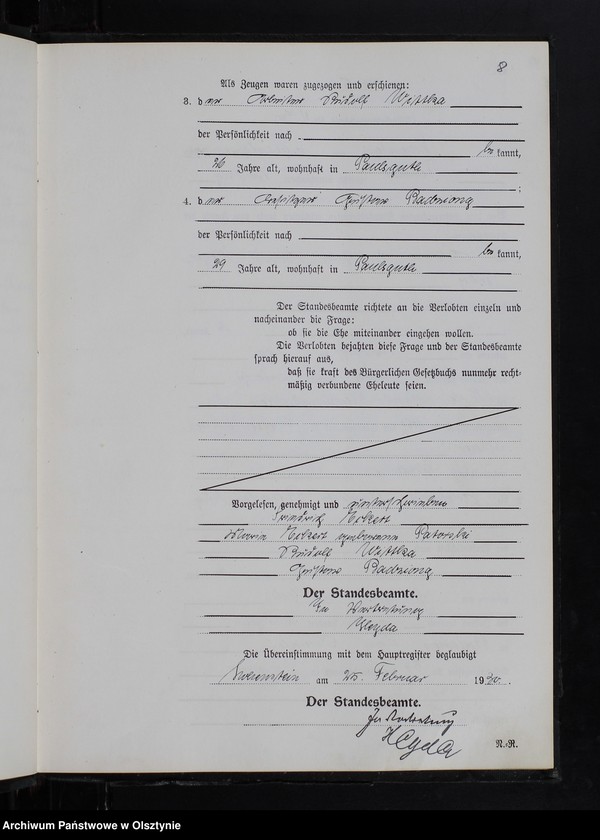 8
Als Zeugen waren zugezogen und erschienen:
3. der Arbeiter Rudolf Wettka
der Persönlichkeit nach
bekannt,
26 Jahre alt, wohnhaft in Paulsguth
;
4. der Gustav Badmsong
der Persönlichkeit nach
bekannt,
29 Jahre alt, wohnhaft in Paulsguth
Der Standesbeamte richtete an die Verlobten einzeln und
nacheinander die Frage:
ob sie die Ehe miteinander eingehen wollen.
Die Verlobten bejahten diese Frage und der Standesbeamte
sprach hierauf aus,
daß sie kraft des Bürgerlichen Gesetzbuchs nunmehr recht-
mäßig verbundene Eheleute seien.
Vorgelesen, genehmigt und unterschrieben
Friedrich
Maria geborene Patorski
Rudolf Wettka
Gustav Badmsong
Der Standesbeamte.
In Vertretung
Heyda
Die Übereinstimmung mit dem Hauptregister beglaubigt
Hohenstein am 25. Februar 1920.
Der Standesbeamte.
In Vertretung
Heyda
N.-R.
Archiwum Państwowe w Olsztynie